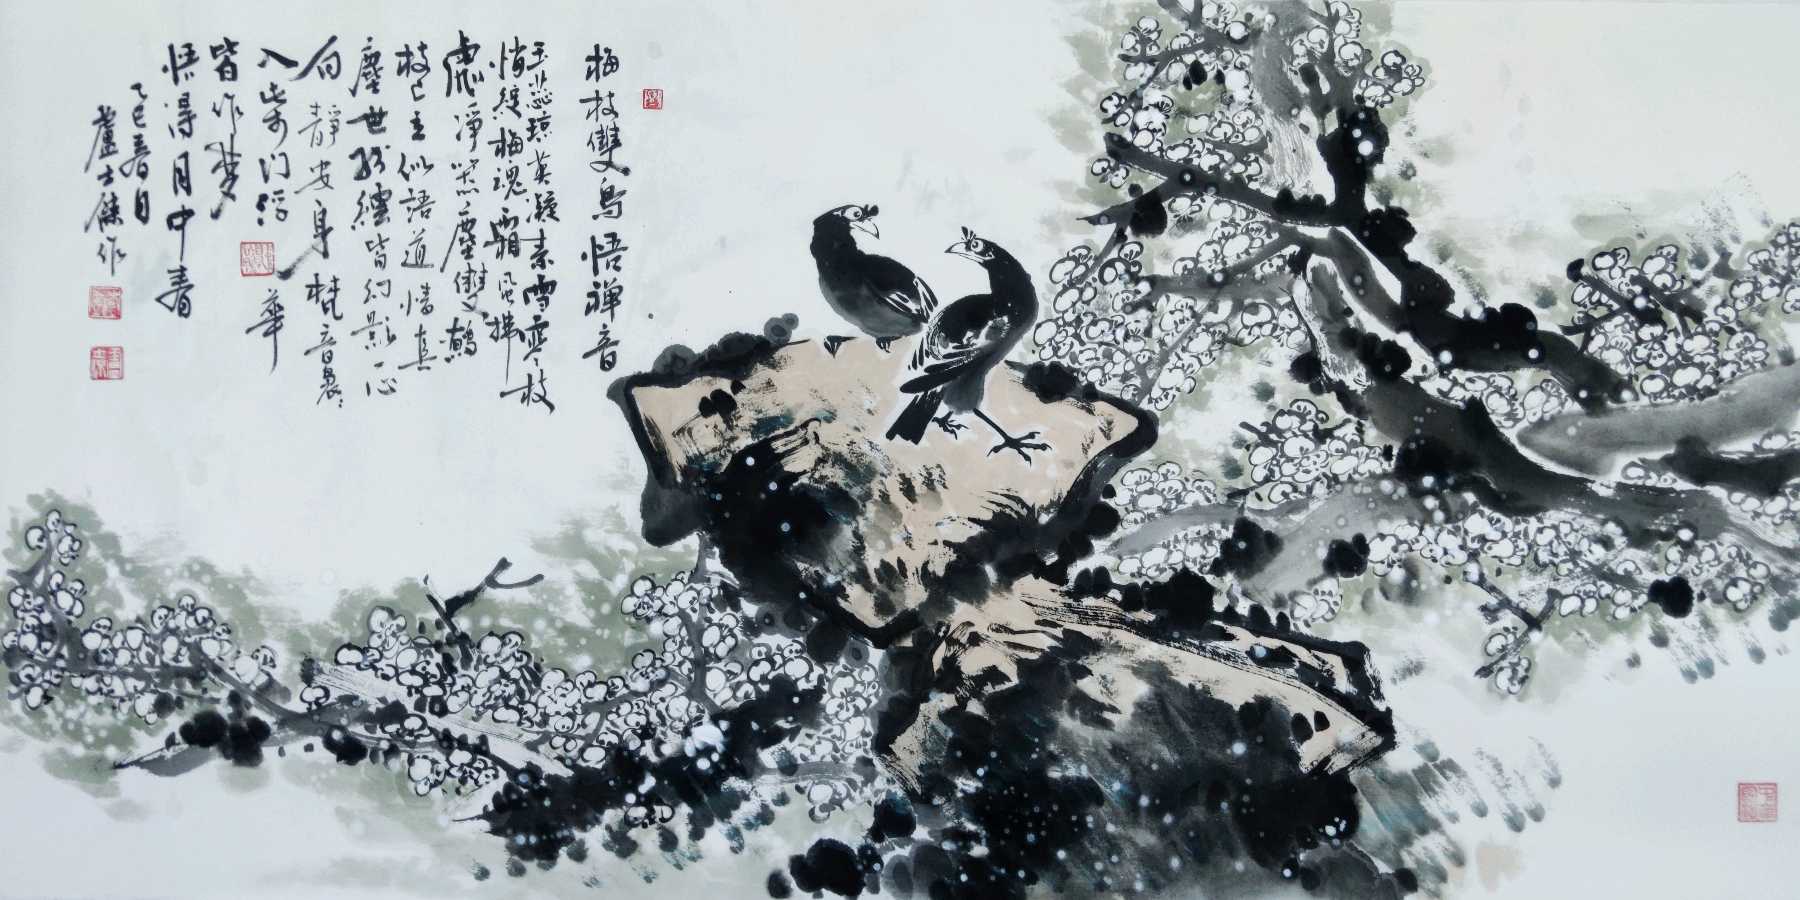 梅枝雙鳥悟禪音
玉蕊瓊英凝素雪寒枝
悄綻梅魂霜風拂
處凈無塵雙
枝上立似語道情真
塵世紛紜皆幻影心
向靜安身梵音裊裊
入柴門浮華
皆作夢
悟得月中春
乙巳春月
盧士傑作